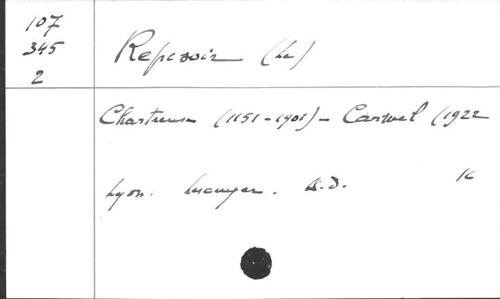 107
345
2
Reposoir (Le)
Chartreuse (1151-1901) - Carmel (1922
Lyon. Lescuyer. S.D. 16